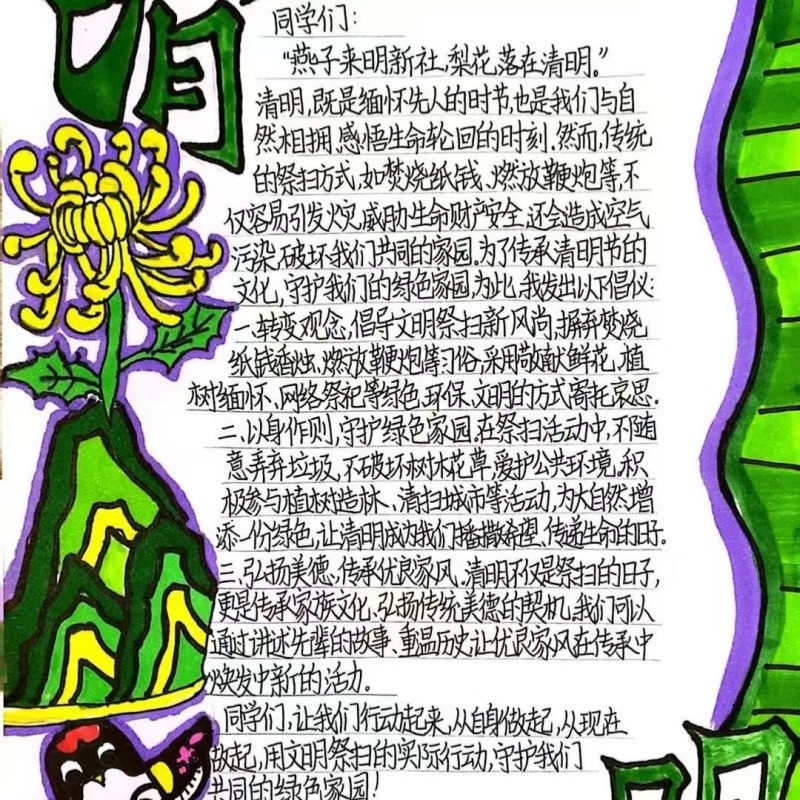 同学们:
“燕子来明新社,梨花落在清明。”
清明,既是缅怀先人的时节,也是我们与自
然相拥,感悟生命轮回的时刻.然而,传统
的祭扫方式,如焚烧纸钱、燃放鞭炮等,不
仅容易引发火灾,威胁生命财产安全,还会造成空气
污染,破坏我们共同的家园.为了传承清明节的
文化,守护我们的绿色家园,为此,我发出以下倡仪:
一.转变观念,倡导文明祭扫新风尚,摒弃焚烧
纸钱香烛、燃放鞭炮等习俗,采用敬献鲜花、植
树缅怀、网络祭祀等绿色、环保、文明的方式寄托哀思.
二.以身作则,守护绿色家园.在祭扫活动中,不随
意弄弃垃圾,不破坏树木花草,爱护公共环境,积
极参与植树造林、清扫城市等活动,为大自然增
添一份绿色,让清明成为我们播撒希望、传递生命的日子.
三.弘扬美德,传承优良家风.清明不仅是祭扫的日子,
更是传承家族文化、弘扬传统美德的契机.我们可以
通过讲述先辈的故事、重温历史,让优良家风在传承中
焕发中新的活力。
同学们,让我们行动起来,从自身做起,从现在
做起,用文明祭扫的实际行动,守护我们
共同的绿色家园!